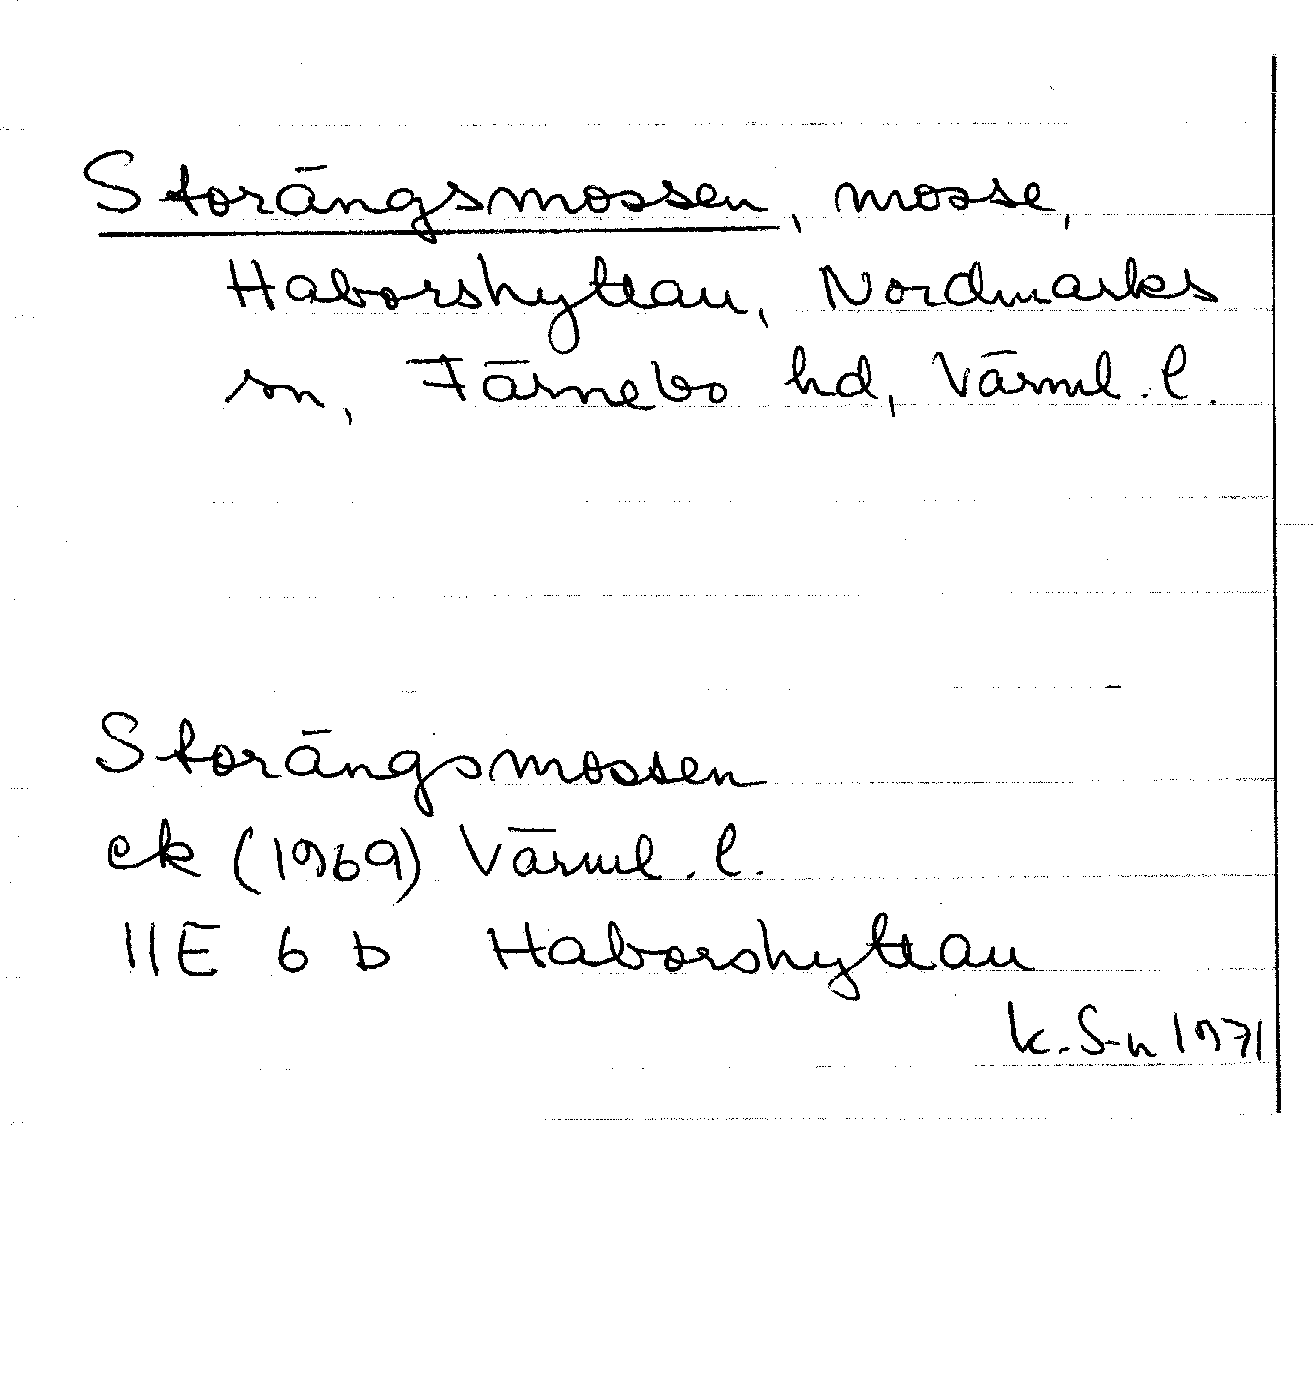 Storängsmossen, mosse,
Haborshyttan, Nordmarks
sn, Färnebo hd, Värml. l.
Storängsmossen
ek (1969) Värml. l.
11E 6 b Haborshyttan
K. S-n 1971